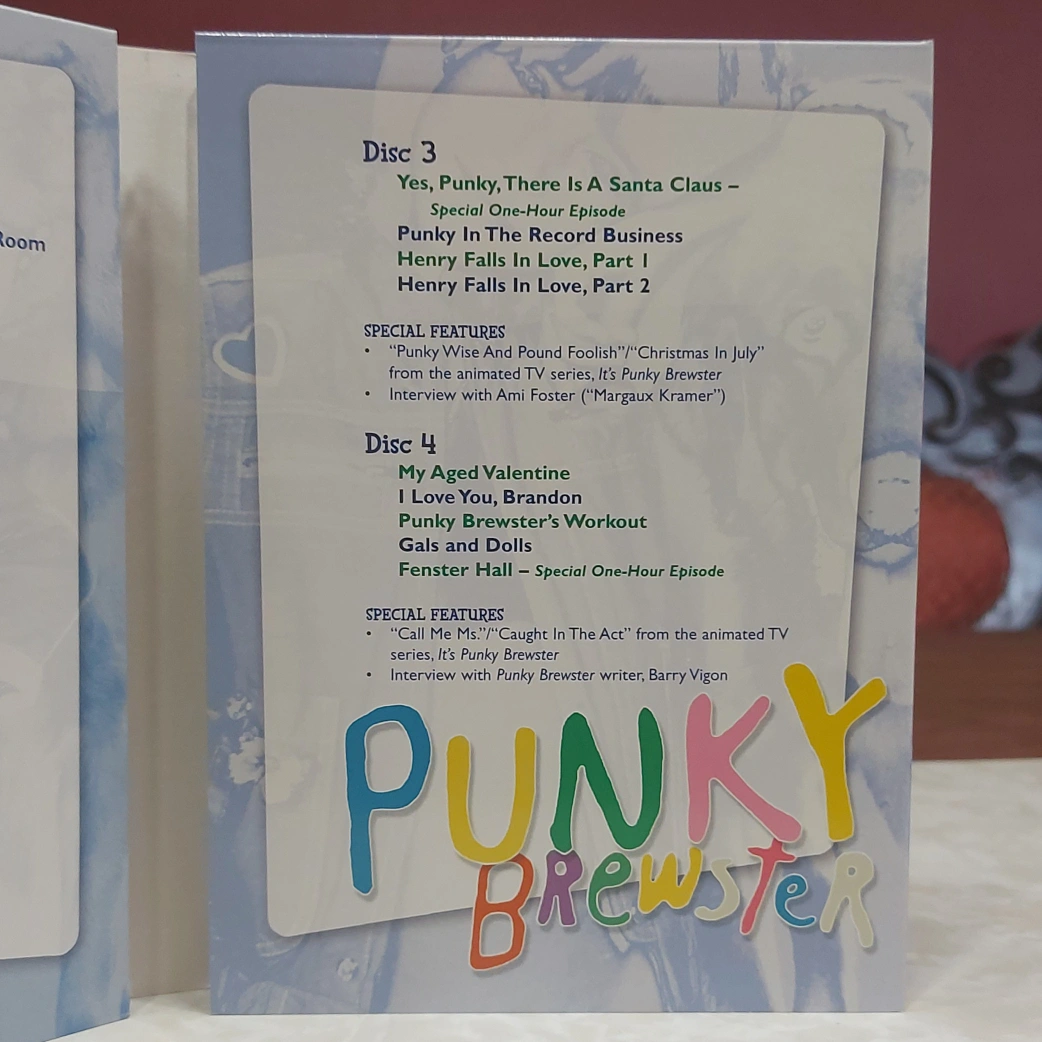 Room
Disc 3
Yes, Punky, There Is A Santa Claus –
Special One-Hour Episode
Punky In The Record Business
Henry Falls In Love, Part 1
Henry Falls In Love, Part 2
SPECIAL FEATURES
• “Punky Wise And Pound Foolish”/“Christmas In July”
from the animated TV series, It’s Punky Brewster
• Interview with Ami Foster (“Margaux Kramer”)
Disc 4
My Aged Valentine
I Love You, Brandon
Punky Brewster’s Workout
Gals and Dolls
Fenster Hall – Special One-Hour Episode
SPECIAL FEATURES
• “Call Me Ms.”/“Caught In The Act” from the animated TV
series, It’s Punky Brewster
• Interview with Punky Brewster writer, Barry Vigon
PUNKY
BReWSTeR